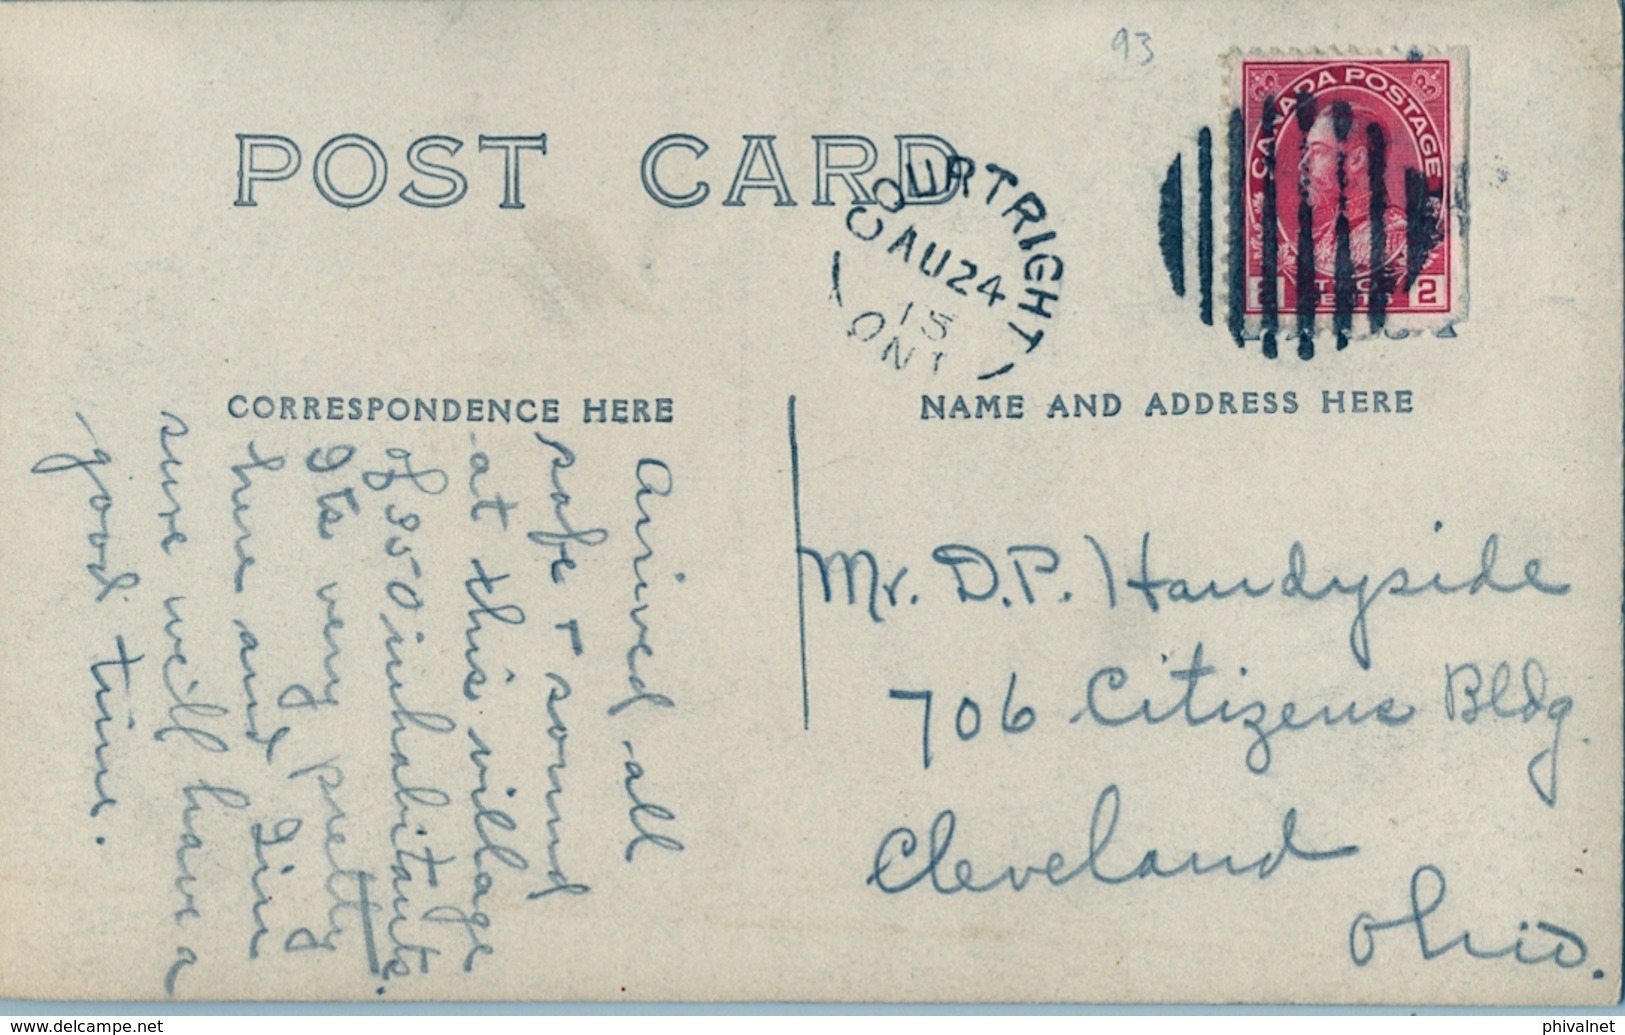 93
POST CARD
COURTRIGHT
AU 24
15
ONT
CANADA POSTAGE
2 TWO CENTS 2
CORRESPONDENCE HERE
NAME AND ADDRESS HERE
Arrived all
safe + sound
at this village
of 350 inhabitants.
Its very pretty
here and I'm
sure will have a
good time.
Mr. D.P. Handyside
706 Citizens Bldg.
Cleveland
Ohio.
www.delcampe.net
phivalnet